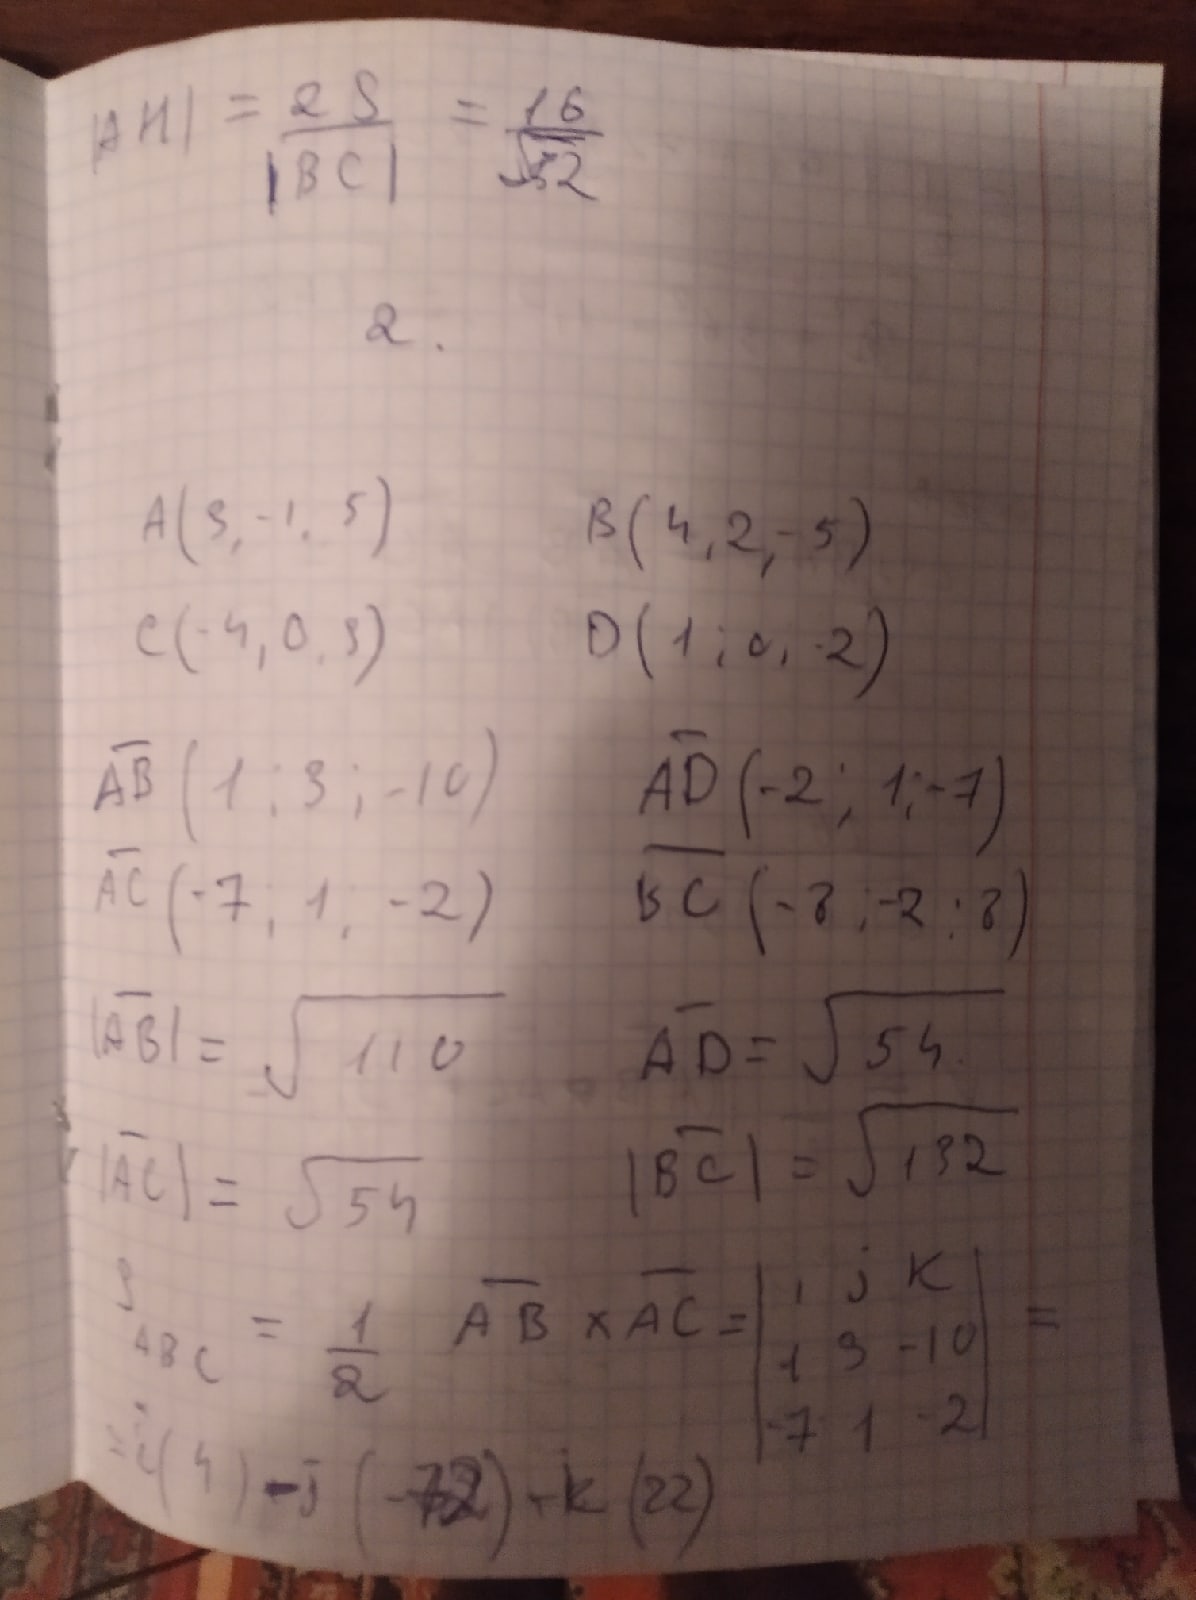 |AH| = 2S / |BC| = 16 / √52
2.
A(3,-1,5) B(4,2,-5)
C(-4,0,3) D(1;0,-2)
AB (1;3;-10) AD (-2;1;-7)
AC (-7;1;-2) BC (-8;-2;8)
|AB| = √110 AD = √54
|AC| = √54 |BC| = √132
S ABC = 1/2 AB × AC = | i j k | =
| 1 3 -10 |
| -7 1 -2 |
= i(4) - j(-72) + k(22)